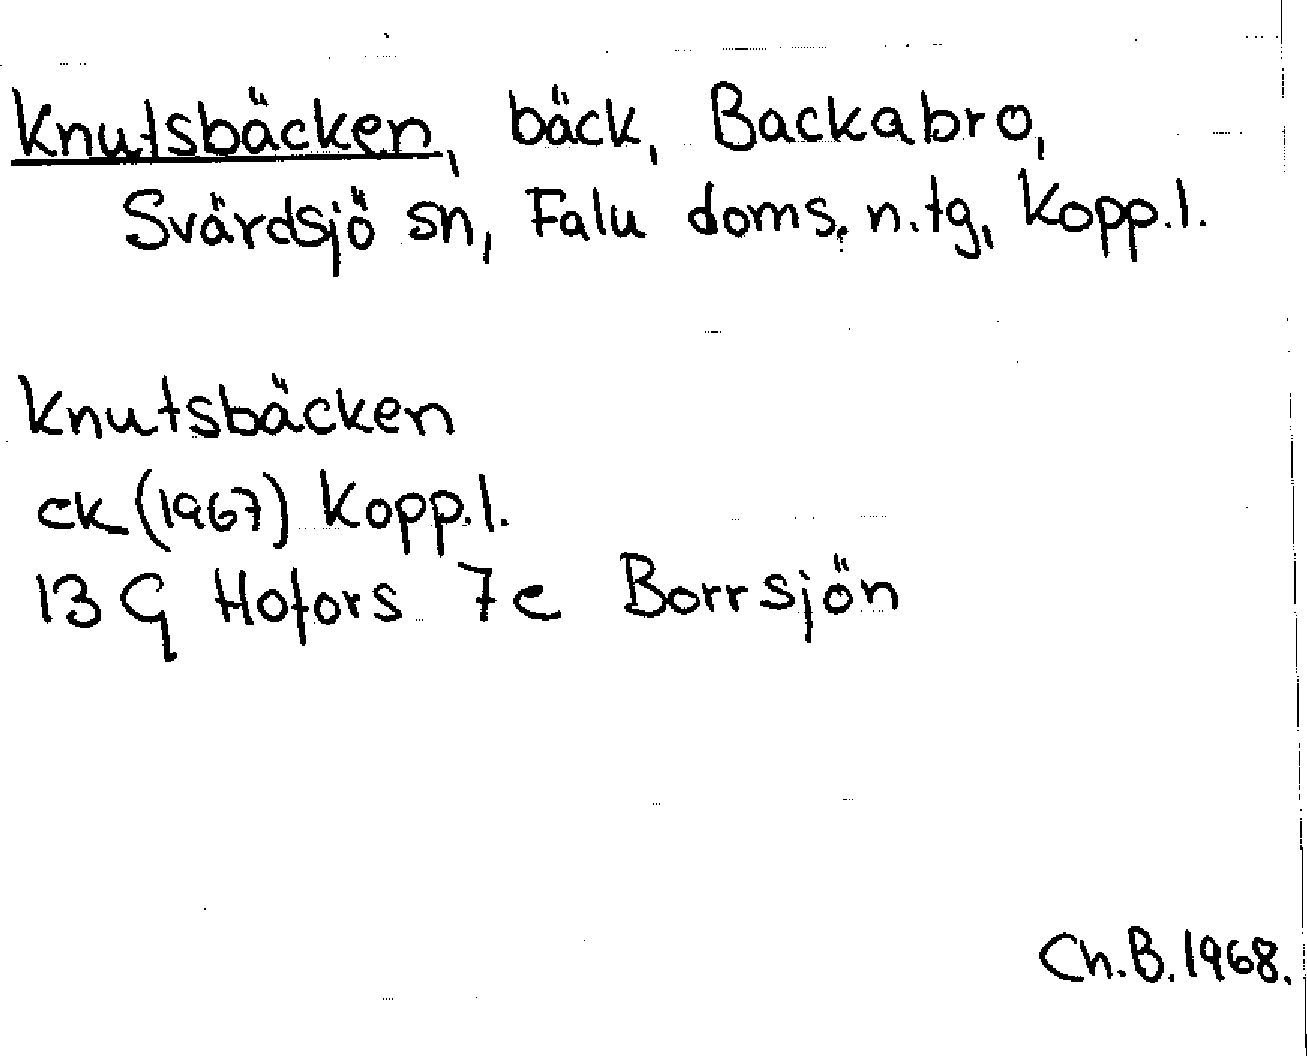 Knutsbäcken, bäck, Backabro,
Svärdsjö sn, Falu doms. n. tg, Kopp.l.
Knutsbäcken
ek (1967) Kopp.l.
13 G Hofors 7 e Borrsjön
Ch.B. 1968.